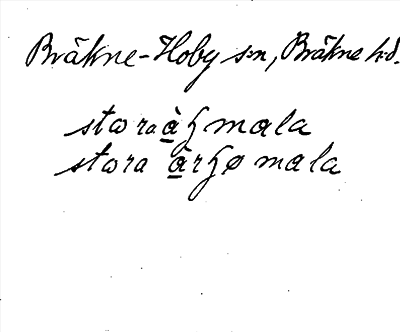 Bräkne-Hoby s:n, Bräkne h:d.
stora àɧmala
stora àrɧømala